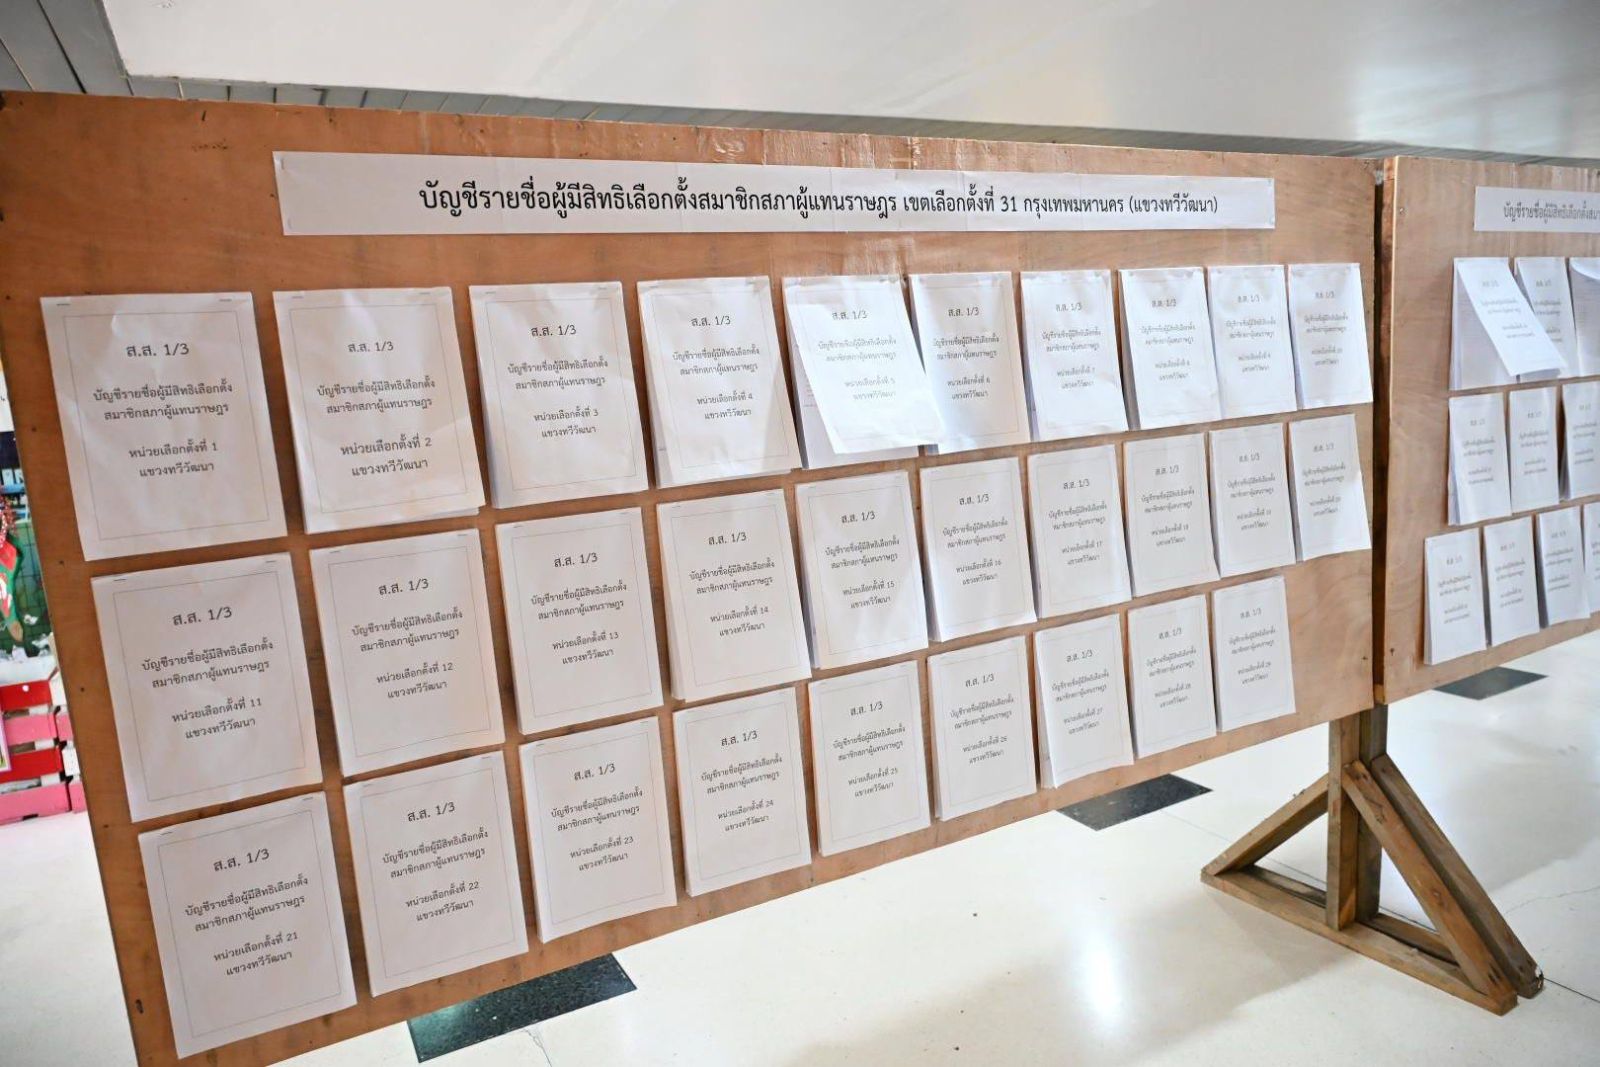 บัญชีรายชื่อผู้มีสิทธิเลือกตั้งสมาชิกสภาผู้แทนราษฎร เขตเลือกตั้งที่ 31 กรุงเทพมหานคร (แขวงทวีวัฒนา)
บัญชีรายชื่อผู้มีสิทธิเลือกตั้งสมา
ส.ส. 1/3
บัญชีรายชื่อผู้มีสิทธิเลือกตั้ง
สมาชิกสภาผู้แทนราษฎร
หน่วยเลือกตั้งที่ 1
แขวงทวีวัฒนา
ส.ส. 1/3
บัญชีรายชื่อผู้มีสิทธิเลือกตั้ง
สมาชิกสภาผู้แทนราษฎร
หน่วยเลือกตั้งที่ 2
แขวงทวีวัฒนา
ส.ส. 1/3
บัญชีรายชื่อผู้มีสิทธิเลือกตั้ง
สมาชิกสภาผู้แทนราษฎร
หน่วยเลือกตั้งที่ 3
แขวงทวีวัฒนา
ส.ส. 1/3
บัญชีรายชื่อผู้มีสิทธิเลือกตั้ง
สมาชิกสภาผู้แทนราษฎร
หน่วยเลือกตั้งที่ 4
แขวงทวีวัฒนา
ส.ส. 1/3
บัญชีรายชื่อผู้มีสิทธิเลือกตั้ง
สมาชิกสภาผู้แทนราษฎร
หน่วยเลือกตั้งที่ 5
แขวงทวีวัฒนา
ส.ส. 1/3
บัญชีรายชื่อผู้มีสิทธิเลือกตั้ง
สมาชิกสภาผู้แทนราษฎร
หน่วยเลือกตั้งที่ 6
แขวงทวีวัฒนา
ส.ส. 1/3
บัญชีรายชื่อผู้มีสิทธิเลือกตั้ง
สมาชิกสภาผู้แทนราษฎร
หน่วยเลือกตั้งที่ 7
แขวงทวีวัฒนา
ส.ส. 1/3
บัญชีรายชื่อผู้มีสิทธิเลือกตั้ง
สมาชิกสภาผู้แทนราษฎร
หน่วยเลือกตั้งที่ 8
แขวงทวีวัฒนา
ส.ส. 1/3
บัญชีรายชื่อผู้มีสิทธิเลือกตั้ง
สมาชิกสภาผู้แทนราษฎร
หน่วยเลือกตั้งที่ 9
แขวงทวีวัฒนา
ส.ส. 1/3
บัญชีรายชื่อผู้มีสิทธิเลือกตั้ง
สมาชิกสภาผู้แทนราษฎร
หน่วยเลือกตั้งที่ 10
แขวงทวีวัฒนา
ส.ส. 1/3
บัญชีรายชื่อผู้มีสิทธิเลือกตั้ง
สมาชิกสภาผู้แทนราษฎร
หน่วยเลือกตั้งที่ 11
แขวงทวีวัฒนา
ส.ส. 1/3
บัญชีรายชื่อผู้มีสิทธิเลือกตั้ง
สมาชิกสภาผู้แทนราษฎร
หน่วยเลือกตั้งที่ 12
แขวงทวีวัฒนา
ส.ส. 1/3
บัญชีรายชื่อผู้มีสิทธิเลือกตั้ง
สมาชิกสภาผู้แทนราษฎร
หน่วยเลือกตั้งที่ 13
แขวงทวีวัฒนา
ส.ส. 1/3
บัญชีรายชื่อผู้มีสิทธิเลือกตั้ง
สมาชิกสภาผู้แทนราษฎร
หน่วยเลือกตั้งที่ 14
แขวงทวีวัฒนา
ส.ส. 1/3
บัญชีรายชื่อผู้มีสิทธิเลือกตั้ง
สมาชิกสภาผู้แทนราษฎร
หน่วยเลือกตั้งที่ 15
แขวงทวีวัฒนา
ส.ส. 1/3
บัญชีรายชื่อผู้มีสิทธิเลือกตั้ง
สมาชิกสภาผู้แทนราษฎร
หน่วยเลือกตั้งที่ 16
แขวงทวีวัฒนา
ส.ส. 1/3
บัญชีรายชื่อผู้มีสิทธิเลือกตั้ง
สมาชิกสภาผู้แทนราษฎร
หน่วยเลือกตั้งที่ 17
แขวงทวีวัฒนา
ส.ส. 1/3
บัญชีรายชื่อผู้มีสิทธิเลือกตั้ง
สมาชิกสภาผู้แทนราษฎร
หน่วยเลือกตั้งที่ 18
แขวงทวีวัฒนา
ส.ส. 1/3
บัญชีรายชื่อผู้มีสิทธิเลือกตั้ง
สมาชิกสภาผู้แทนราษฎร
หน่วยเลือกตั้งที่ 19
แขวงทวีวัฒนา
ส.ส. 1/3
บัญชีรายชื่อผู้มีสิทธิเลือกตั้ง
สมาชิกสภาผู้แทนราษฎร
หน่วยเลือกตั้งที่ 20
แขวงทวีวัฒนา
ส.ส. 1/3
บัญชีรายชื่อผู้มีสิทธิเลือกตั้ง
สมาชิกสภาผู้แทนราษฎร
หน่วยเลือกตั้งที่ 21
แขวงทวีวัฒนา
ส.ส. 1/3
บัญชีรายชื่อผู้มีสิทธิเลือกตั้ง
สมาชิกสภาผู้แทนราษฎร
หน่วยเลือกตั้งที่ 22
แขวงทวีวัฒนา
ส.ส. 1/3
บัญชีรายชื่อผู้มีสิทธิเลือกตั้ง
สมาชิกสภาผู้แทนราษฎร
หน่วยเลือกตั้งที่ 23
แขวงทวีวัฒนา
ส.ส. 1/3
บัญชีรายชื่อผู้มีสิทธิเลือกตั้ง
สมาชิกสภาผู้แทนราษฎร
หน่วยเลือกตั้งที่ 24
แขวงทวีวัฒนา
ส.ส. 1/3
บัญชีรายชื่อผู้มีสิทธิเลือกตั้ง
สมาชิกสภาผู้แทนราษฎร
หน่วยเลือกตั้งที่ 25
แขวงทวีวัฒนา
ส.ส. 1/3
บัญชีรายชื่อผู้มีสิทธิเลือกตั้ง
สมาชิกสภาผู้แทนราษฎร
หน่วยเลือกตั้งที่ 26
แขวงทวีวัฒนา
ส.ส. 1/3
บัญชีรายชื่อผู้มีสิทธิเลือกตั้ง
สมาชิกสภาผู้แทนราษฎร
หน่วยเลือกตั้งที่ 27
แขวงทวีวัฒนา
ส.ส. 1/3
บัญชีรายชื่อผู้มีสิทธิเลือกตั้ง
สมาชิกสภาผู้แทนราษฎร
หน่วยเลือกตั้งที่ 28
แขวงทวีวัฒนา
ส.ส. 1/3
บัญชีรายชื่อผู้มีสิทธิเลือกตั้ง
สมาชิกสภาผู้แทนราษฎร
หน่วยเลือกตั้งที่ 29
แขวงทวีวัฒนา